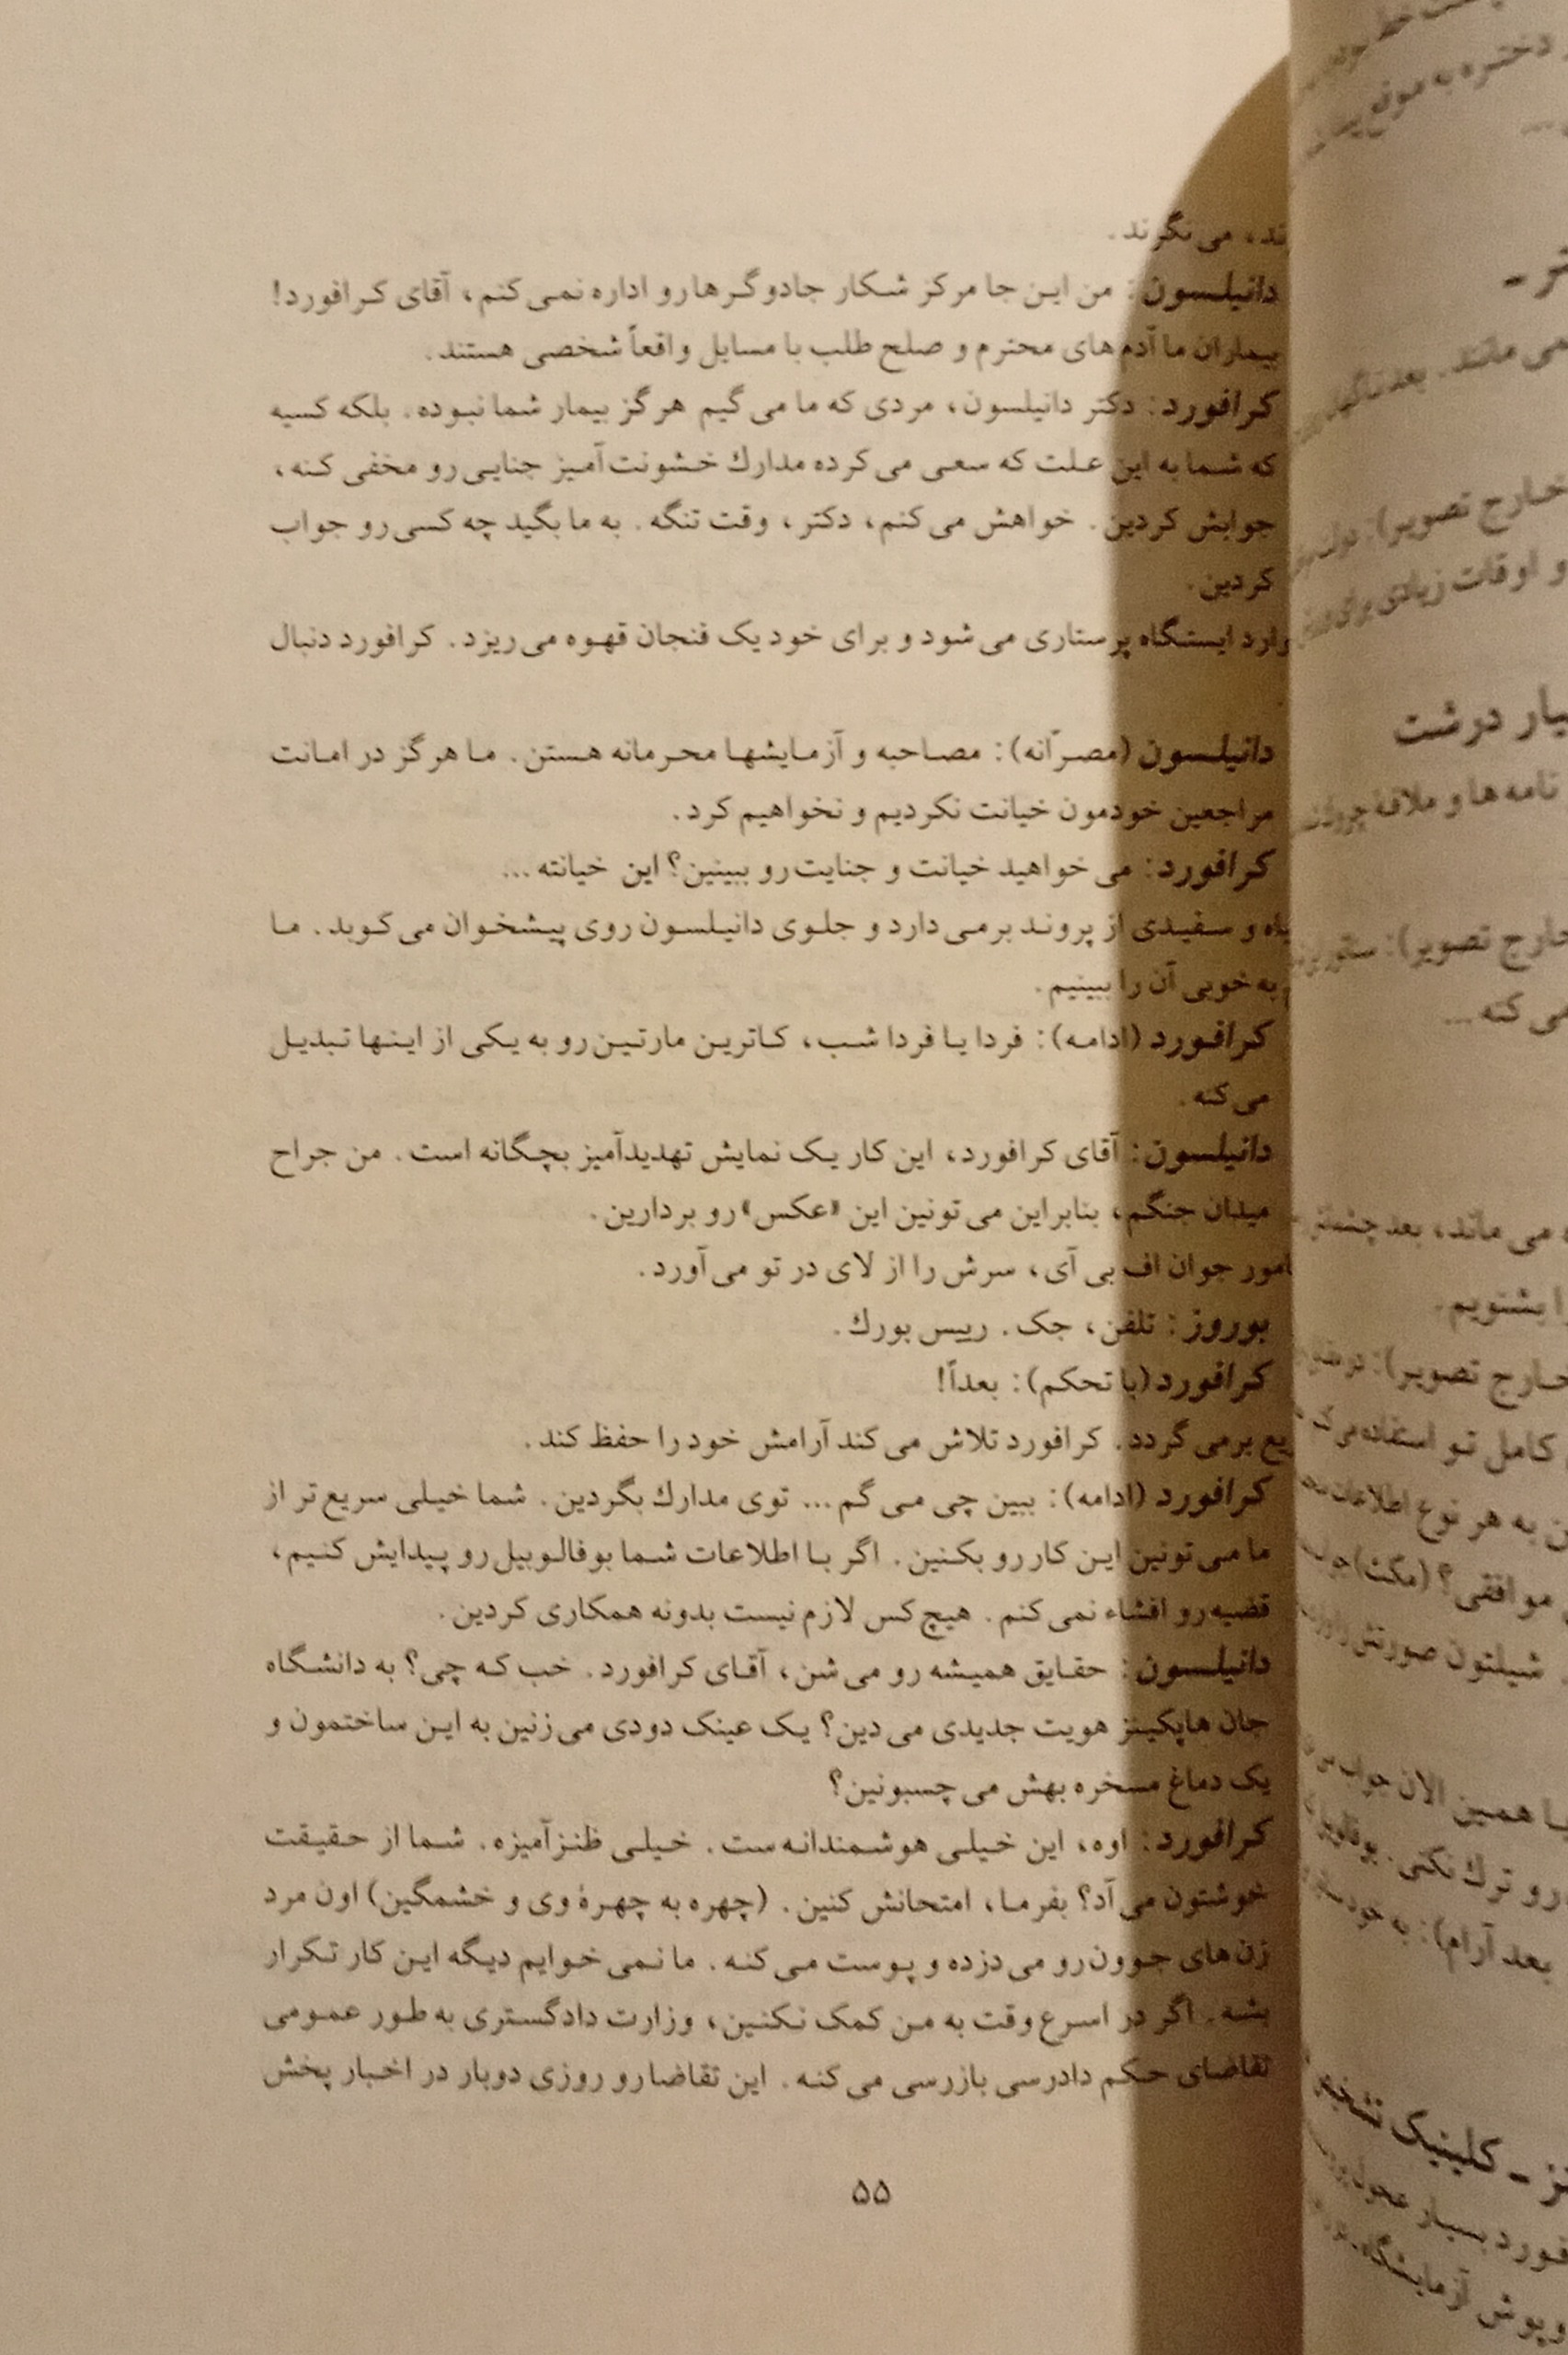 می‌نگرند.
دانیلسون: من این جا مرکز شکار جادوگرها رو اداره نمی‌کنم، آقای کرافورد!
بیماران ما آدم‌های محترم و صلح طلب با مسایل واقعاً شخصی هستند.
کرافورد: دکتر دانیلسون، مردی که ما می‌گیم هرگز بیمار شما نبوده. بلکه کسیه
که شما به این علت که سعی می‌کرده مدارك خشونت‌آمیز جنایی رو مخفی کنه،
جوابش کردین. خواهش می‌کنم، دکتر، وقت تنگه. به ما بگید چه کسی رو جواب
کردین.
وارد ایستگاه پرستاری می‌شود و برای خود یک فنجان قهوه می‌ریزد. کرافورد دنبال
دانیلسون (مصرّانه): مصاحبه و آزمایشها محرمانه هستن. ما هرگز در امانت
مراجعین خودمون خیانت نکردیم و نخواهیم کرد.
کرافورد: می‌خواهید خیانت و جنایت رو ببینین؟ این خیانته...
و سفیدی از پروند برمی‌دارد و جلوی دانیلسون روی پیشخوان می‌کوبد. ما
به خوبی آن را ببینیم.
کرافورد (ادامه): فردا یا فردا شب، کاترین مارتین رو به یکی از اینها تبدیل
می‌کنه.
دانیلسون: آقای کرافورد، این کار یک نمایش تهدیدآمیز بچگانه است. من جراح
میدان جنگم، بنابراین می‌تونین این «عکس» رو بردارین.
جوان اف بی آی، سرش را از لای در تو می‌آورد.
بوروز: تلفن، جک. رییس بورك.
کرافورد (با تحکم): بعداً!
برمی‌گردد. کرافورد تلاش می‌کند آرامش خود را حفظ کند.
کرافورد (ادامه): ببین چی می‌گم... توی مدارك بگردین. شما خیلی سریع‌تر از
ما می‌تونین این کار رو بکنین. اگر با اطلاعات شما بوفالوبیل رو پیدایش کنیم،
قضیه رو افشاء نمی‌کنم. هیچ کس لازم نیست بدونه همکاری کردین.
دانیلسون: حقایق همیشه رو می‌شن، آقای کرافورد. خب که چی؟ به دانشگاه
جان هاپکینز هویت جدیدی می‌دین؟ یک عینک دودی می‌زنین به این ساختمون و
یک دماغ مسخره بهش می‌چسبونین؟
کرافورد: اوه، این خیلی هوشمندانه‌ست. خیلی ظنزآمیزه. شما از حقیقت
خوشتون می‌آد؟ بفرما، امتحانش کنین. (چهره به چهرهٔ وی و خشمگین) اون مرد
زن‌های جوون رو می‌دزده و پوست می‌کنه. ما نمی‌خوایم دیگه این کار تکرار
بشه. اگر در اسرع وقت به من کمک نکنین، وزارت دادگستری به طور عمومی
تقاضای حکم دادرسی بازرسی می‌کنه. این تقاضا رو روزی دوبار در اخبار پخش
۵۵
دختره به موقع
می‌مانند. بعد ناگهان
خارج تصویر).
و اوقات زیادی برای
درشت
نامه‌ها و ملافهٔ
تصویر):
می‌کنه...
می‌ماند، بعد
بشنویم.
تصویر):
کامل تو استفاده
به هر نوع اطلاعات
موافقی؟ (مکث)
شیلتون صورتش را
همین الان جواب
رو ترك نکنی.
بعد آرام): به خود
- کلینیک
بسیار
آزمایشگاه